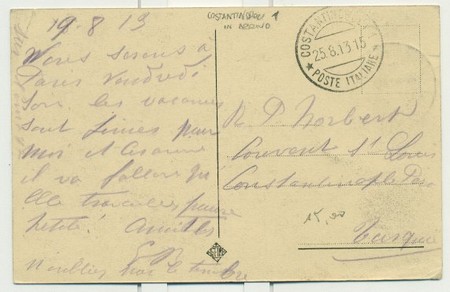 19-8 13
Nous serons à
Paris Vendredi
Soir les vacances
sont finies pour
moi et
il va falloir
elle travailler pauvre
petite! Amitiés
N'oubliez pas le timbre
CONSTANTINOPOLI 1
CONSTANTINOPOLI
25.8.13.15
* POSTE ITALIANE *
R. P. Norbert
Couvent St Louis
Constantinople Pera
15,00
Turquie